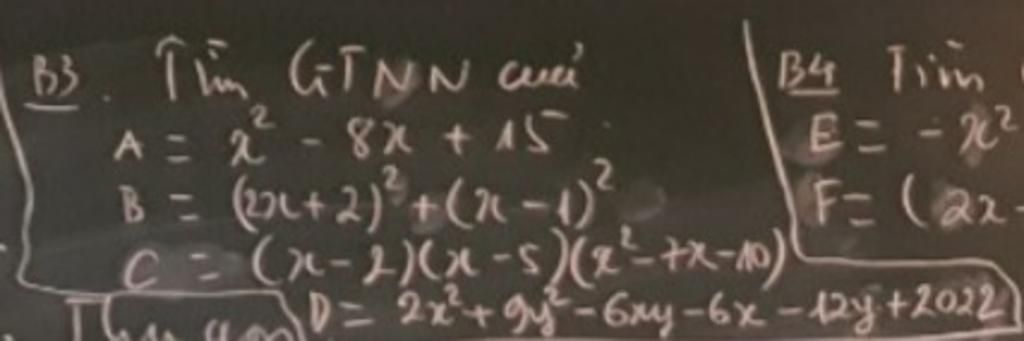 B3. Tìm GTNN của
A = x² - 8x + 15
B = (2x+2)² + (x-1)²
C = (x-2)(x-5)(x²-7x-10)
D = 2x² + 9y² - 6xy - 6x - 12y + 2022
B4 Tìm
E = -x²
F = (2x-